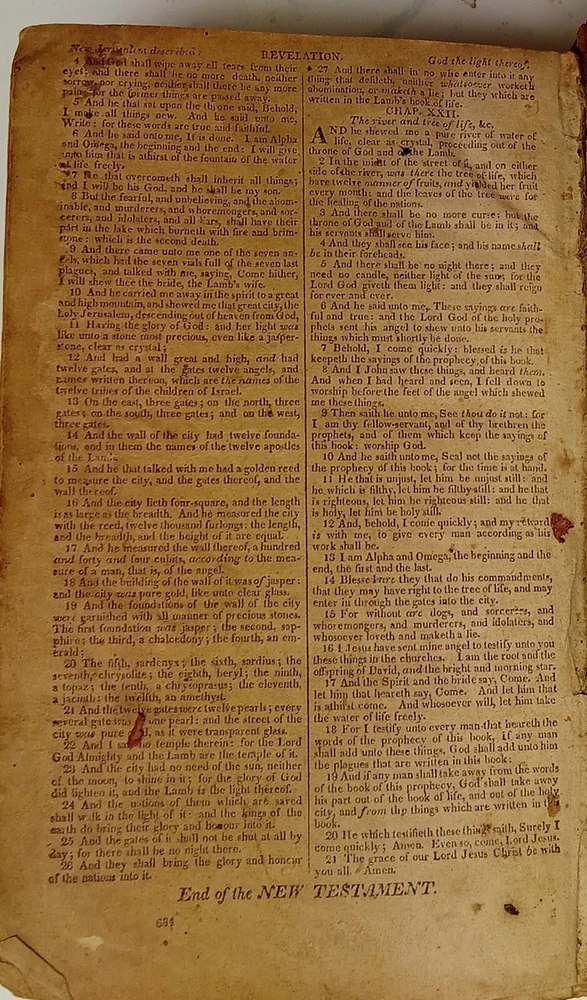 New Jerusalem described:
REVELATION.
God the light thereof.
4 And God shall wipe away all tears from their
eyes; and there shall be no more death, neither
sorrow, nor crying, neither shall there be any more
pain: for the former things are passed away.
5 And he that sat upon the throne said, Behold,
I make all things new. And he said unto me,
Write: for these words are true and faithful.
6 And he said unto me, It is done. I am Alpha
and Omega, the beginning and the end: I will give
unto him that is athirst of the fountain of the water
of life freely.
7 He that overcometh shall inherit all things;
and I will be his God, and he shall be my son.
8 But the fearful, and unbelieving, and the abom-
inable, and murderers, and whoremongers, and sor-
cerers, and idolaters, and all liars, shall have their
part in the lake which burneth with fire and brim-
stone: which is the second death.
9 And there came unto me one of the seven an-
gels, which had the seven vials full of the seven last
plagues, and talked with me, saying, Come hither,
I will shew thee the bride, the Lamb's wife.
10 And he carried me away in the spirit to a great
and high mountain, and shewed me that great city, the
holy Jerusalem, descending out of heaven from God,
11 Having the glory of God: and her light was
like unto a stone most precious, even like a jasper-
stone, clear as crystal;
12 And had a wall great and high, and had
twelve gates, and at the gates twelve angels, and
names written thereon, which are the names of the
twelve tribes of the children of Israel.
13 On the east, three gates; on the north, three
gates; on the south, three gates; and on the west,
three gates.
14 And the wall of the city had twelve founda-
tions, and in them the names of the twelve apostles
of the Lamb.
15 And he that talked with me had a golden reed
to measure the city, and the gates thereof, and the
wall thereof.
16 And the city lieth four-square, and the length
is as large as the breadth. And he measured the city
with the reed, twelve thousand furlongs: the length,
and the breadth, and the height of it are equal.
17 And he measured the wall thereof, a hundred
and forty and four cubits, according to the mea-
sure of a man, that is, of the angel.
18 And the building of the wall of it was of jasper:
and the city was pure gold, like unto clear glass.
19 And the foundations of the wall of the city
were garnished with all manner of precious stones.
The first foundation was jasper; the second, sap-
phire; the third, a chalcedony; the fourth, an em-
erald;
20 The fifth, sardonyx; the sixth, sardius; the
seventh, chrysolite; the eighth, beryl; the ninth,
a topaz; the tenth, a chrysoprasus; the eleventh,
a jacinth: the twelfth, an amethyst.
21 And the twelve gates were twelve pearls; every
several gate was one pearl: and the street of the
city was pure as it were transparent glass.
22 And I saw no temple therein: for the Lord
God Almighty and the Lamb are the temple of it.
23 And the city had no need of the sun, neither
of the moon, to shine in it; for the glory of God
did lighten it, and the Lamb is the light thereof.
24 And the nations of them which are saved
shall walk in the light of it: and the kings of the
earth do bring their glory and honour into it.
25 And the gates of it shall not be shut at all by
day; for there shall be no night there.
26 And they shall bring the glory and honour
of the nations into it.
27 And there shall in no wise enter into it any
thing that defileth, neither whatsoever worketh
abomination, or maketh a lie; but they which are
written in the Lamb's book of life.
CHAP. XXII.
The river and tree of life, &c.
AND he shewed me a pure river of water of
life, clear as crystal, proceeding out of the
throne of God and of the Lamb.
2 In the midst of the street of it, and on either
side of the river, was there the tree of life, which
bare twelve manner of fruits, and yielded her fruit
every month: and the leaves of the tree were for
the healing of the nations.
3 And there shall be no more curse: but the
throne of God and of the Lamb shall be in it; and
his servants shall serve him.
4 And they shall see his face; and his name shall
be in their foreheads.
5 And there shall be no night there; and they
need no candle, neither light of the sun; for the
Lord God giveth them light: and they shall reign
for ever and ever.
6 And he said unto me, These sayings are faith-
ful and true: and the Lord God of the holy pro-
phets sent his angel to shew unto his servants the
things which must shortly be done.
7 Behold, I come quickly: blessed is he that
keepeth the sayings of the prophecy of this book.
8 And I John saw these things, and heard them.
And when I had heard and seen, I fell down to
worship before the feet of the angel which shewed
me these things.
9 Then saith he unto me, See thou do it not: for
I am thy fellow-servant, and of thy brethren the
prophets, and of them which keep the sayings of
this book: worship God.
10 And he saith unto me, Seal not the sayings of
the prophecy of this book; for the time is at hand.
11 He that is unjust, let him be unjust still: and
he which is filthy, let him be filthy still: and he that
is righteous, let him be righteous still: and he that
is holy, let him be holy still.
12 And, behold, I come quickly; and my reward
is with me, to give every man according as his
work shall be.
13 I am Alpha and Omega, the beginning and the
end, the first and the last.
14 Blessed are they that do his commandments,
that they may have right to the tree of life, and may
enter in through the gates into the city.
15 For without are dogs, and sorcerers, and
whoremongers, and murderers, and idolaters, and
whosoever loveth and maketh a lie.
16 I Jesus have sent mine angel to testify unto you
these things in the churches. I am the root and the
offspring of David, and the bright and morning star.
17 And the Spirit and the bride say, Come. And
let him that heareth say, Come. And let him that
is athirst come. And whosoever will, let him take
the water of life freely.
18 For I testify unto every man that heareth the
words of the prophecy of this book, If any man
shall add unto these things, God shall add unto him
the plagues that are written in this book:
19 And if any man shall take away from the words
of the book of this prophecy, God shall take away
his part out of the book of life, and out of the holy
city, and from the things which are written in this
book.
20 He which testifieth these things saith, Surely I
come quickly; Amen. Even so, come, Lord Jesus.
21 The grace of our Lord Jesus Christ be with
you all. Amen.
End of the NEW TESTAMENT.
684